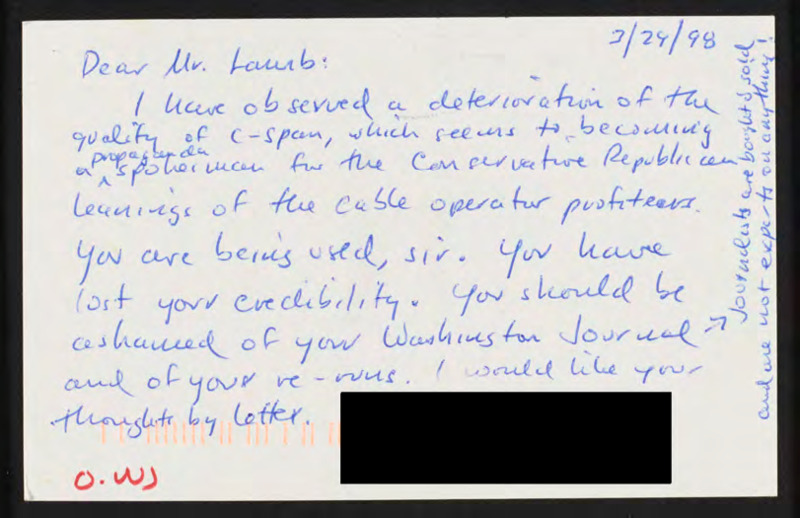 3/29/98
Dear Mr. Lamb:
I have observed a deterioration of the
quality of C-span, which seems to becoming
a propaganda spokesman for the Conservative Republican
leanings of the cable operator profiteers.
You are being used, sir. You have
lost your credibility. You should be
ashamed of your Washington Journal →
and of your re-runs. I would like your
thoughts by letter.
Journalists are bought & sold
and are not experts on anything!